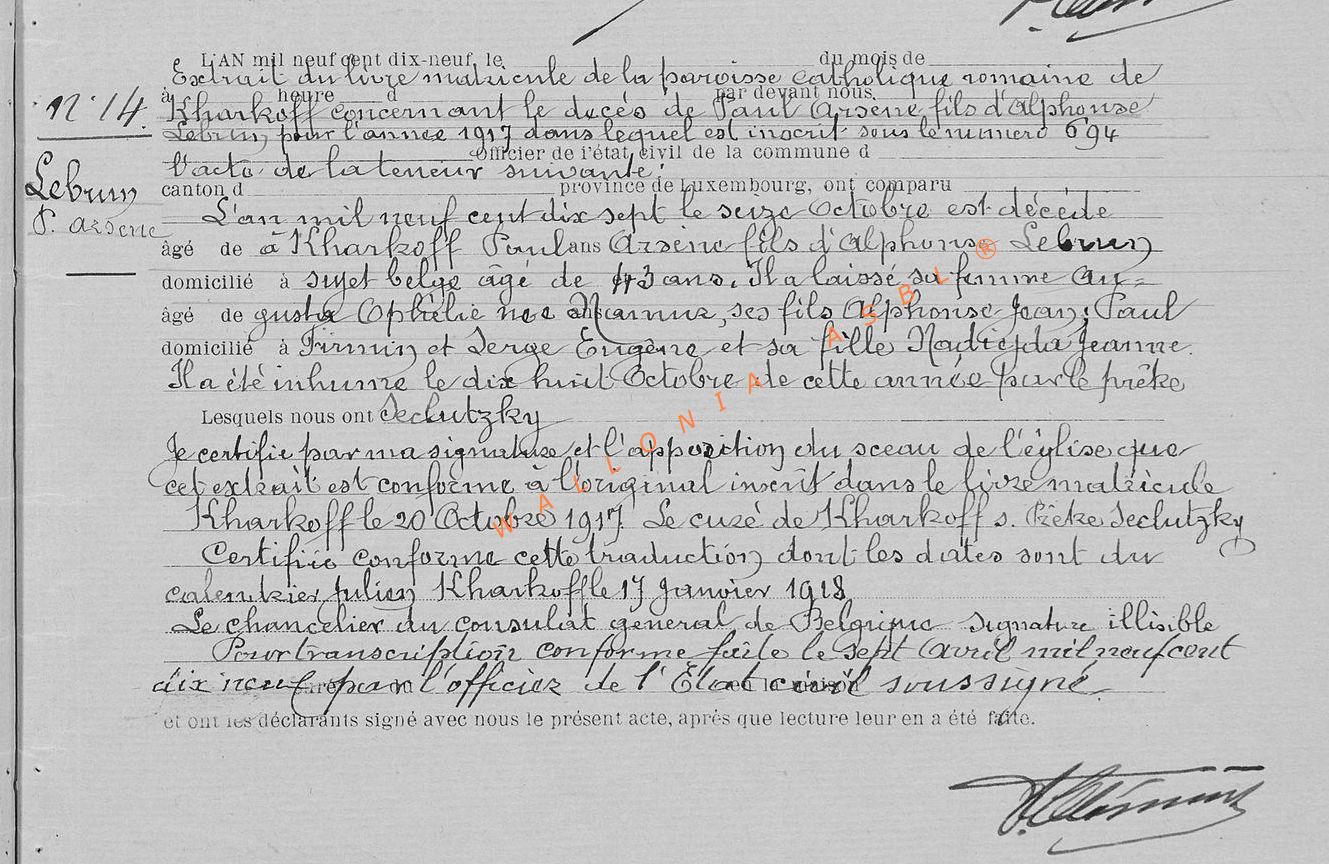 L'AN mil neuf cent dix-neuf, le du mois de
Extrait du livre matricule de la paroisse catholique romaine de
à heure d par devant nous
N° 14.
Kharkoff concernant le décés de Paul Arsène fils d'Alphonse
Lebrun, pour l'année 1917 dans lequel est inscrit sous le numéro 694
Officier de l'état civil de la commune d
l'acte de la teneur suivante:
Lebrun
canton d province de Luxembourg, ont comparu
P. Arsène
L'an mil neuf cent dix sept le seize Octobre est décédé
âgé de à Kharkoff Paul ans Arsène fils d'Alphonse Lebrun
domicilié à sujet belge âgé de 43 ans. Il a laissé sa femme Au=
âgé de gusta Ophélie née, ses fils Alphonse Jean, Paul
domicilié à Firmin et Serge Eugène et sa fille Jeanne.
Il a été inhumé le dix huit Octobre de cette année par le prêtre
Lesquels nous ont Seclutzky
Je certifie par ma signature et l'apposition du sceau de l'église que
cet extrait est conforme à l'original inscrit dans le livre matricule
Kharkoff le 20 Octobre 1917 Le curé de Kharkoff s. Prêtre Seclutzky
Certifié conforme cette traduction dont les dates sont du
calendrier Julien Kharkoff le 17 Janvier 1918
Le chancelier du consulat général de Belgique signature illisible
Pour transcription conforme faite le sept Avril mil neuf cent
dix neuf par l'officier de l'État civil soussigné.
et ont les déclarants signé avec nous le présent acte, après que lecture leur en a été faite.
WALLONIA ASBL ®